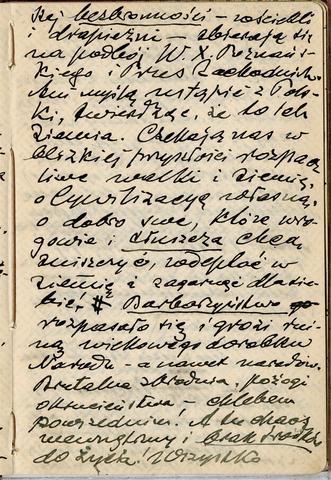 kej bezbronności – rościli
i drapieżni – zbierają się
na podbój W. X. Poznań-
skiego i Prus Zachodnich.
Ani myślą ustąpić z Pols-
ki, twierdząc, że to ich
ziemia. Czekają nas w
blizkiej przyszłości rozpacz
liwe walki i ziemię,
o Cywilizacyę własną,
o dobro swe, które wro-
gowie i tłuszcza chcą
zniszczyć, zadeptać w
ziemię i zagarnąć dla sie-
bie. Barbarzyństwo
rozpasało się i grozi rui-
ną wiekowego dorobku
Narodu – a nawet narodów.
Brutalne zbrodnie, pożogi
okrucieństwa – chlebem
powszednim! A tu chaos
wewnętrzny i brak środków
do życia! Wszystko